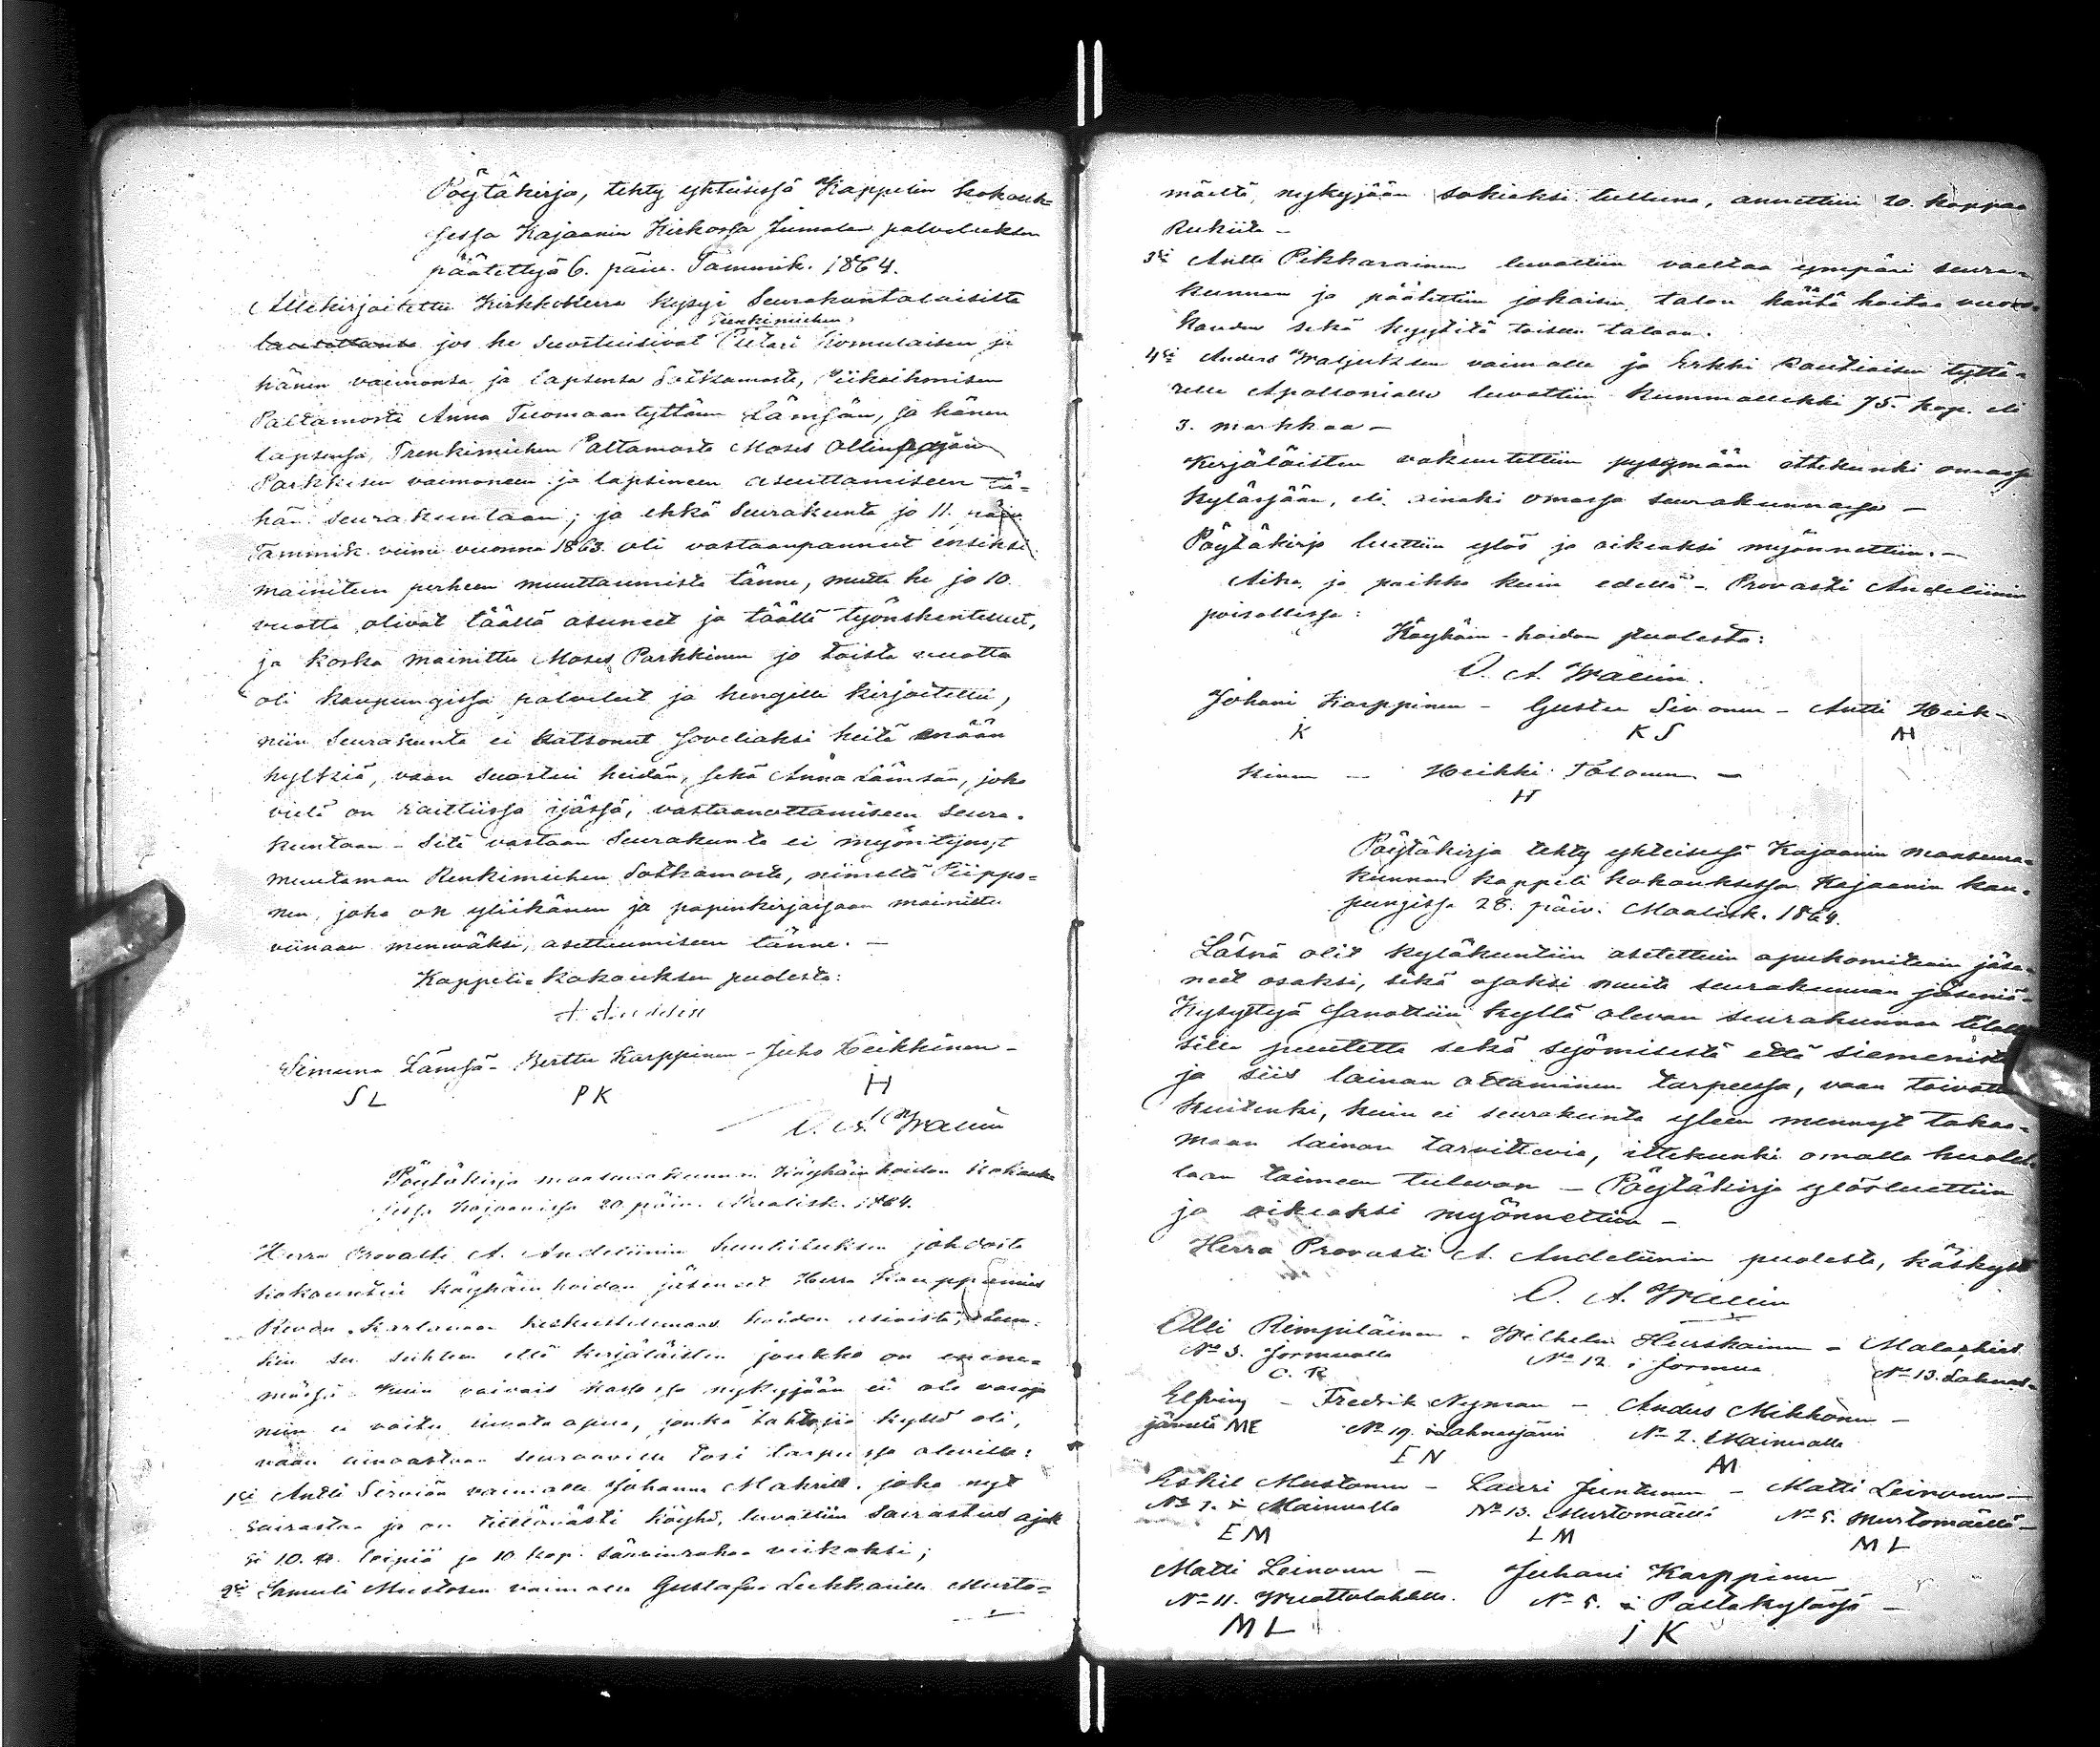 Pöytäkirja, tehty yhteisessä Kappelin kokouk-
sessa Kajaanin Kirkossa Jumalan palveluksen
päätettyä 6. päiv. Tammik. 1864.
Allekirjoitettu Kirkkoherra kysyi Seurakuntalaisilta
Trenkimiehen
jos he suostuisivat Pietari Komulaisen ja
hänen vaimonsa ja lapsensa Sotkamosta, Piikaihmisen
Paltamosta Anna Tuomaantyttären Lämsän, ja hänen
lapsensa, Trenkimiehen Paltamosta Moses Ollinpojan
Parkkisen vaimoneen ja lapsineen asuttamiseen tä-
hän seurakuntaan; ja ehkä Seurakunta jo 11. päiv.
Tammik. viime vuonna 1863. oli vastaanpanneet ensiksi
mainitun perheen muuttaumista tänne, mutta he jo 10.
vuotta olivat täällä asuneet ja täällä työnskentelleet,
ja koska mainittu Moses Parkkinen jo toista vuotta
oli kaupungissa palvellut ja hengille kirjoitettu,
niin Seurakunta ei katsonut soveliaksi heitä enään
hyltziä, vaan suostui heidän, sekä Anna Lämsän, joka
vielä on raittiissa ijässä, vastaanottamiseen seura-
kuntaan - Sitä vastaan Seurakunta ei myöntynyt
muutaman Renkimiehen Sotkamosta, nimeltä Piippo-
nen, joka on yliikänen ja papinkirjassaan mainittu
viinaan meneväksi, asettuumiseen tänne. -
Kappeli-kokouksen puolesta:
A. Andelin
Simuna Lämsä - Perttu Karppinen - Juho Heikkinen -
S L P K H
O. A. Wallin
Pöytäkirja maaseurakunnan Köyhäinhoidon kokouk-
sessa Kajaanissa 20 päiv. Maalisk. 1864.
Herra Provasti A. Andeliinin kuulutuksen johdosta
kokountui köyhäinhoidon jäsenet Herra Kauppamies
Renvan kartanoon keskustelemaan hoidon asioista,
kin se seikka että kerjäläisten joukko on enene-
mässä. Kuin vaivais kassassa nykyjään ei ole varoja
niin ei voitu luvata apua, jonka tahtojia kyllä oli,
vaan ainoastaan seuraaville tosi tarpeessa oleville:
1si Antti Sirviön vaimolle Johanna Mahrill. joka nyt
sairastaa ja on tiettävästi köyhä, luvattiin sairastus ajak-
si 10. ℔. leipiä ja 10 kop. särvinrahaa viikoksi;
2si Samuli Mustosen vaimolle Gustafva Leikkanille Murto-
mäeltä, nykyjään sokiaksi tulleena, annettiin 20. kappaa
Rukiita -
3si Antti Pikkarainen luvattiin vaeltaa ympäri seura-
kunnan ja päätettiin jokaisen talon häntä hoitaa vuoro-
kauden sekä kyytitä toiseen taloon.
4si Anders Waljuksen vaimolle ja Erkki Rautiaisen tyttä-
relle Apolloniallo luvattiin kummallekki 75. kop. eli
3. markkaa -
Kerjäläisten vakuutettiin pysymään ittekunki omassa
kylässään, eli ainaki omassa seurakunnassa -
Pöytäkirja luettiin ylös ja oikeaksi myönnettiin. -
Aika ja paikka kuin edellä - Provasti Andeliinin
poisollessa:
Köyhäin-hoidon puolesta:
O. A. Wallin.
Johani Karppinen - Gustu Sivonen - Antti Heik-
K K S AH
kinen - Heikki Tolonen -
H
Pöytäkirja tehty yhteisessä Kajaanin maaseura-
kunnan kappeli kokouksessa Kajaanin kau-
pungissa 28. päiv. Maalisk. 1864.
Läsnä olit kyläkuntiin asetettuin apukomiteain jäse-
net osaksi, sekä osaksi muita seurakunnan jäseniä -
Kysyttyä sanottiin kyllä olevan seurakunnan
sille puutetta sekä syömisestä että siemenistä
ja siis lainan ottaminen tarpeessa, vaan toivottiin
kuitenki, kuin ei seurakunta yleen mennyt takaa-
maan lainan tarvittevia, ittekunki omalla huolel-
laan toimeen tulevan - Pöytäkirja ylösluettiin
ja oikeaksi myönnettiin -
Herra Provasti A. Andeliinin puolesta, käskystä
O. A. Wallin
Olli Rimpiläinen - Wilhelm Heiskainen - Malakias
No 3. Jormualla No 12. i Jormua No 13. Lahnas-
O. R
Elfving - Fredrik Nyman - Andus Mikkonen -
järvellä ME No 19. i Lahnasjärvi No 2. Mainualla
F N AM
Eskil Mustonen - Lauri Juntunen - Matti Leinonen -
No 1. i Mainualla No 13. Murtomäellä No 5. Murtomäellä -
E M L M M L
Matti Leinonen - Juhani Karppinen
No 11. Wuottolahdella. No 5. i Paltakylässä -
M L J K